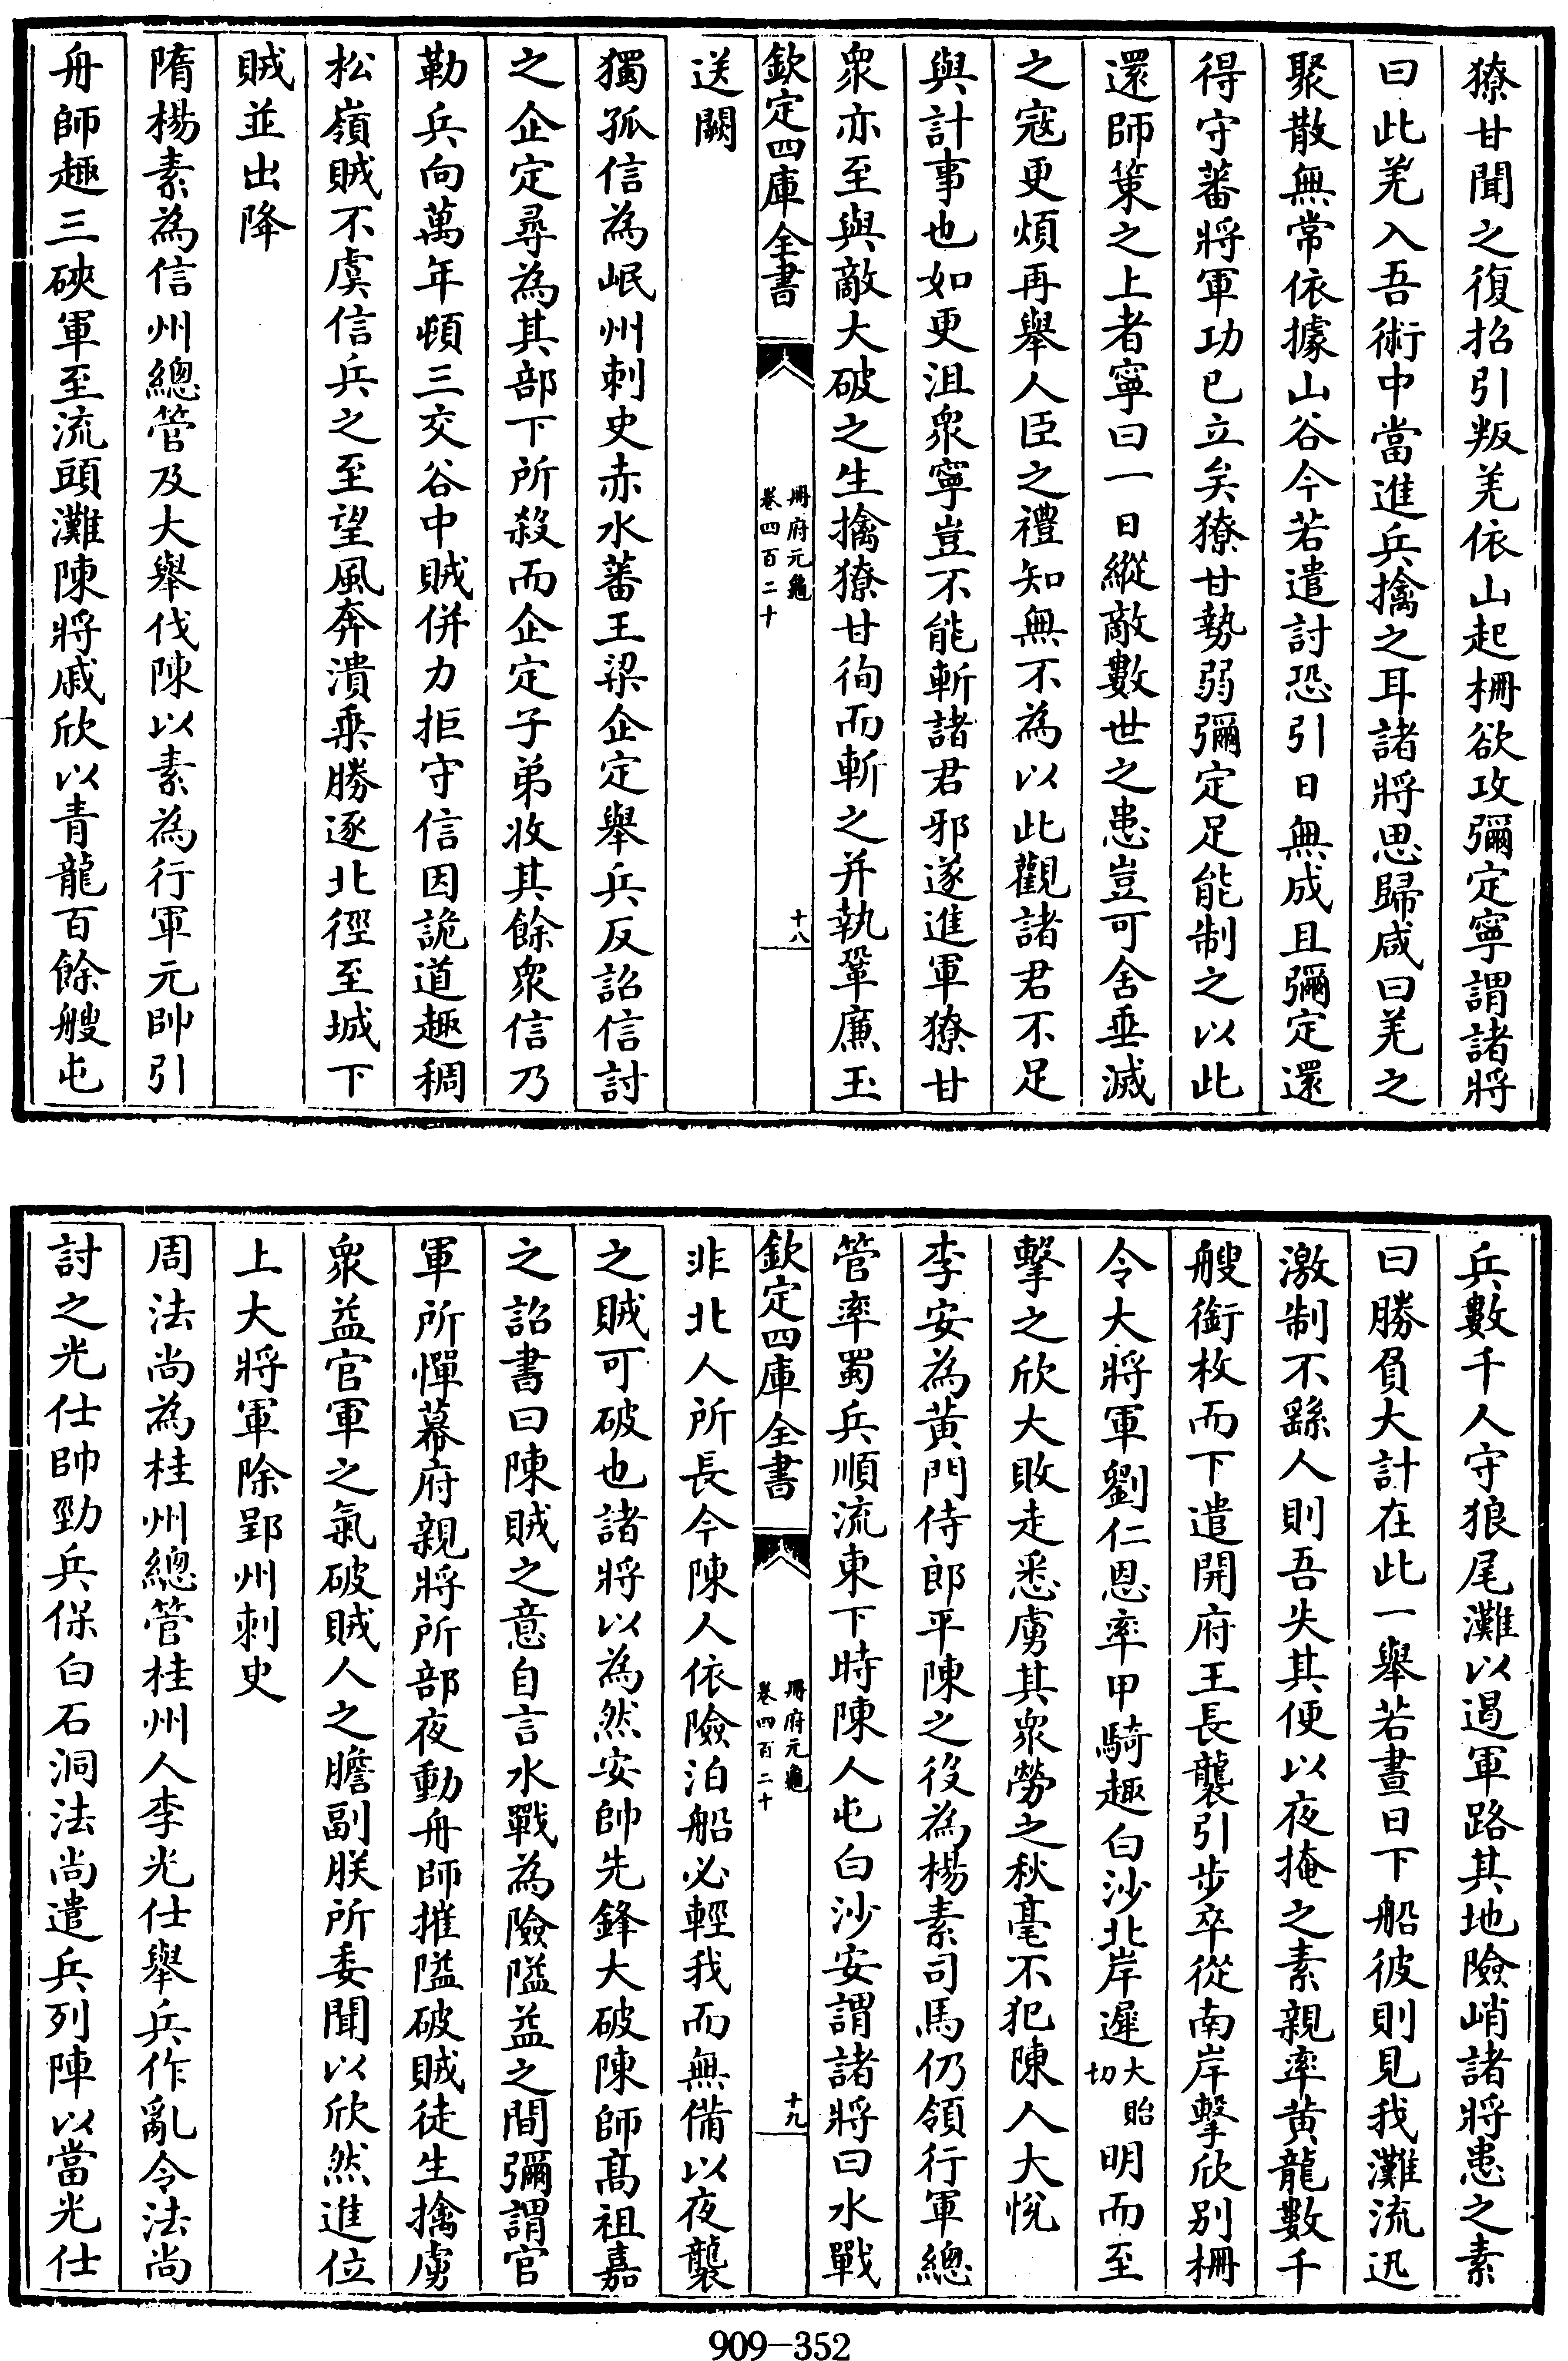 獠甘聞之復招引叛羌依山起柵欲攻彌定寧謂諸將
曰此羌入吾術中當進兵擒之耳諸將思歸咸曰羌之
聚散無常依據山谷今若遣討恐引日無成且彌定還
得守蕃將軍功已立矣獠甘勢弱彌定足能制之以此
還師策之上者寧曰一日縱敵數世之患豈可舍垂滅
之寇更煩再舉人臣之禮知無不為以此觀諸君不足
與計事也如更沮衆寧豈不能斬諸君邪遂進軍獠甘
衆亦至與敵大破之生擒獠甘徇而斬之并執鞏廉玉
欽定四庫全書
册府元龜
卷四百二十
十八
送闕
獨孤信為岷州刺史赤水蕃王梁企定舉兵反詔信討
之企定尋為其部下所殺而企定子弟收其餘衆信乃
勒兵向萬年頓三交谷中賊併力拒守信因詭道趣稠
松嶺賊不虞信兵之至望風奔潰乘勝逐北徑至城下
賊並出降
隋楊素為信州總管及大舉伐陳以素為行軍元帥引
舟師趣三硤軍至流頭灘陳將戚欣以青龍百餘艘屯
兵數千人守狼尾灘以遏軍路其地險峭諸將患之素
曰勝負大計在此一舉若晝日下船彼則見我灘流迅
激制不繇人則吾失其便以夜掩之素親率黄龍數千
艘銜枚而下遣開府王長襲引步卒從南岸擊欣别柵
令大將軍劉仁恩率甲騎趣白沙北岸遲大貽切明而至
擊之欣大敗走悉虜其衆勞之秋毫不犯陳人大悦
李安為黄門侍郎平陳之役為楊素司馬仍領行軍總
管率蜀兵順流東下時陳人屯白沙安謂諸將曰水戰
欽定四庫全書
册府元龜
卷四百二十
十九
非北人所長今陳人依險泊船必輕我而無備以夜襲
之賊可破也諸將以為然安帥先鋒大破陳師髙祖嘉
之詔書曰陳賊之意自言水戰為險隘益之間彌謂官
軍所憚幕府親將所部夜動舟師摧隘破賊徒生擒虜
衆益官軍之氣破賊人之膽副朕所委聞以欣然進位
上大將軍除郢州刺史
周法尚為桂州總管桂州人李光仕舉兵作亂令法尚
討之光仕帥勁兵保白石洞法尚遣兵列陣以當光仕
909-352